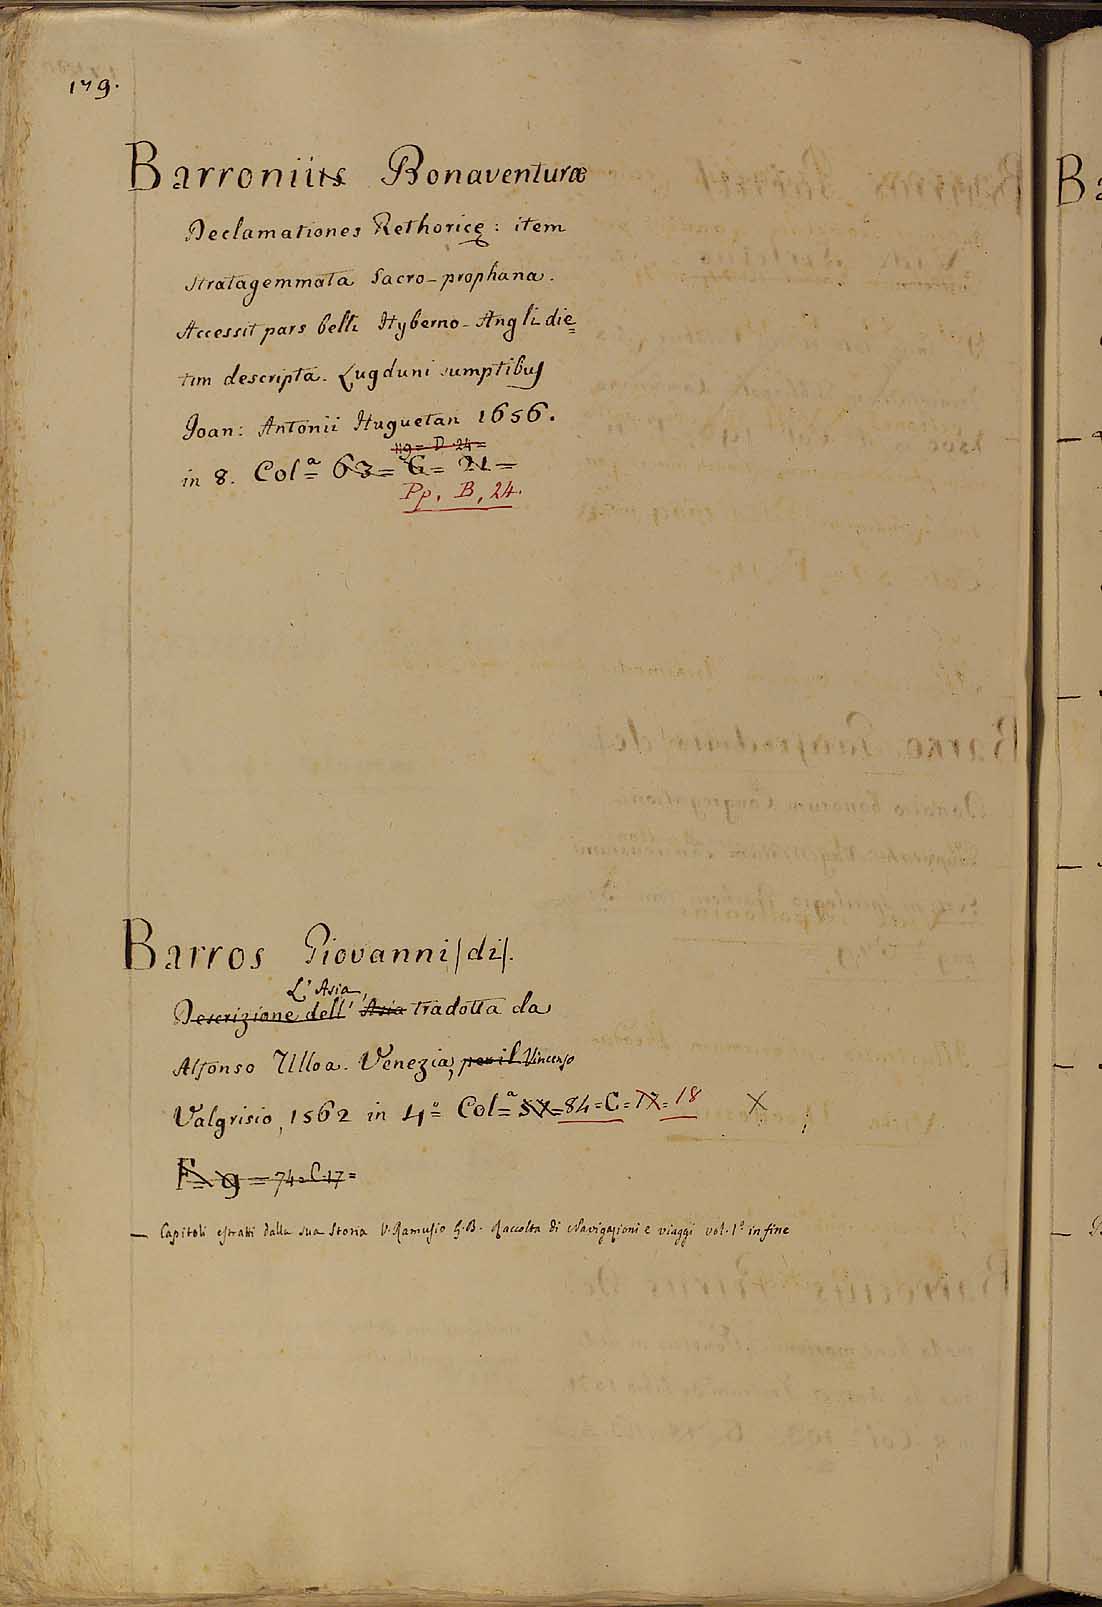 179.
Barroniius Bonaventuræ
Declamationes Rethoricę: item
stratagemmata sacro-prophana.
Accessit pars belli Hyberno-Angli die=
tim descripta. Lugduni sumptibus
Joan: Antonii Huguetan 1656.
119= D 24=
in 8. Col.ª 63= G= 21=
Pp. B, 24.
Barros Giovanni /di/.
L' Asia,
Descrizione dell' Asia tradotta da
Alfonso Ulloa. Venezia, per il Vincenso
Valgrisio, 1562 in 4.º Col.ª 57=84=C=17=18 X
F= 9=74=C 17=
— Capitoli estratti dalla sua storia V. Ramusio G.B. Raccolta di Navigazioni e viaggi vol. 1º in fine
Ba